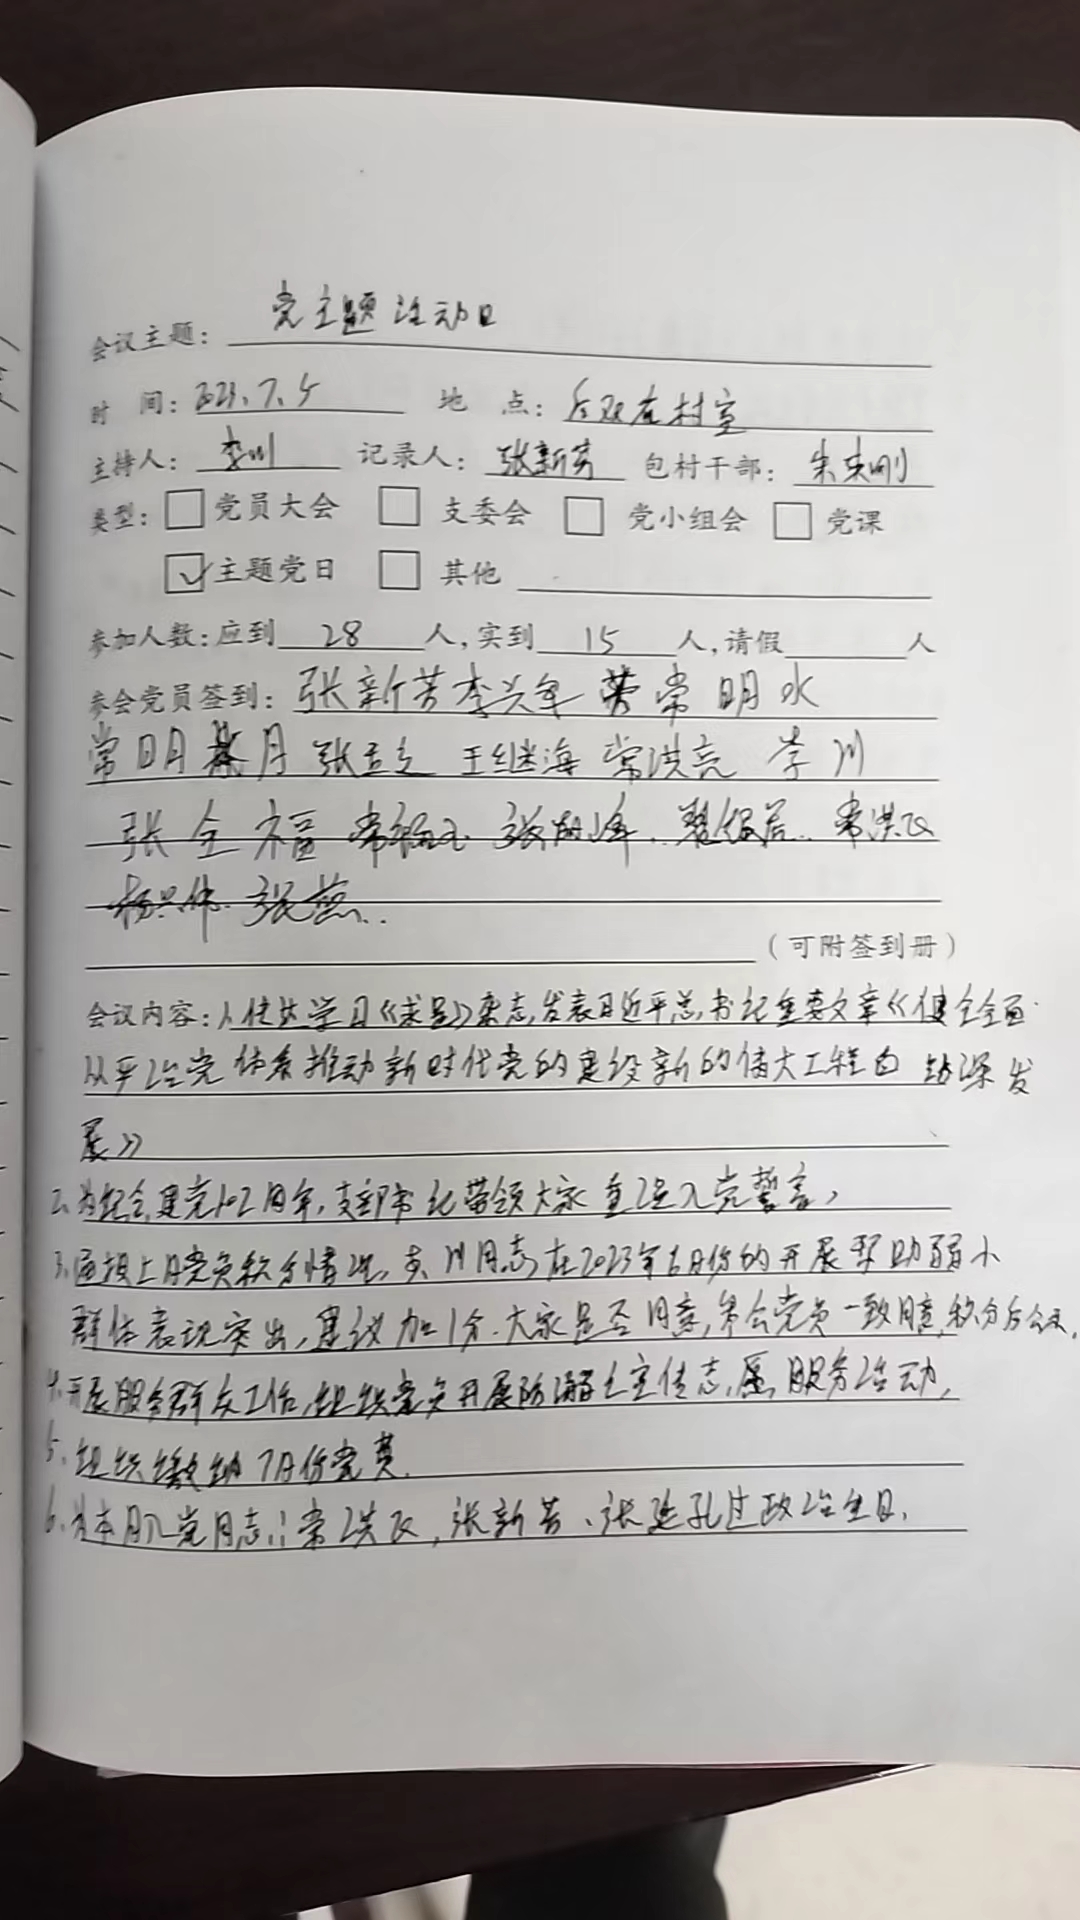 会议主题: 党主题活动日
时 间: 2023.7.5 地 点: 后双庙村室
主持人: 李川 记录人: 张新芳 包村干部: 朱东刚
类型: 党员大会 支委会 党小组会 党课
✓主题党日 其他
参加人数: 应到 28 人, 实到 15 人, 请假 人
参会党员签到: 张新芳 李兴年 常明水
常明月 王继海 常洪亮 李川
张全福 常洪
张燕
(可附签到册)
会议内容: 1.传达学习《求是》杂志发表习近平总书记重要文章《健全全面
从严治党体系推动新时代党的建设新的伟大工程向纵深发
展》
2.为纪念建党102周年,支部书记带领大家重温入党誓言,
3.通报上月党员积分情况,李川同志在2023年6月份的开展帮助弱小
群体表现突出,建议加1分.大家是否同意,参会党员一致同意,积分后公示.
4.开展服务群众工作,组织党员开展防溺水宣传志愿服务活动,
5.组织缴纳7月份党费.
6.为本月入党同志:常洪,张新芳、张延孔过政治生日.